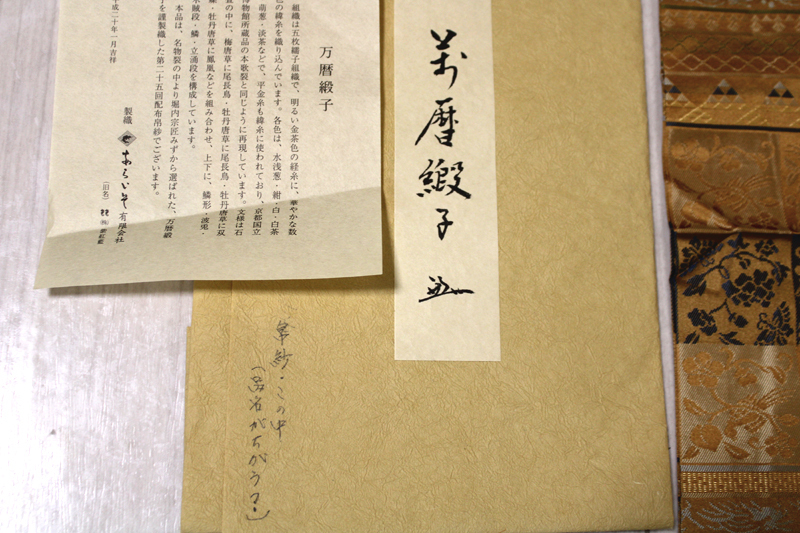 萬暦緞子
万暦緞子
組織は五枚繻子組織で、明るい金茶色の経糸に、華やかな数
色の緯糸を織り込んでいます。各色は、水浅葱・紺・白・白茶
萌葱・淡茶などで、平金糸も緯糸に使われており、京都国立
博物館所蔵品の本歌裂と同じように再現しています。文様は石
畳の中に、梅唐草に尾長鳥・牡丹唐草に尾長鳥・牡丹唐草に双
蝶・牡丹唐草に鳳凰などを組み合わせ、上下に、鱗形・波兎・
木賊段・鱗・立涌段を構成しています。
本品は、名物裂の中より堀内宗匠みずから選ばれた、万暦緞
子を謹製織した第二十五回配布帛紗でございます。
成二十年一月吉祥
製織 あらいそ有限会社
(旧名) ㈱
帛紗・この中
(品名がちがう?)